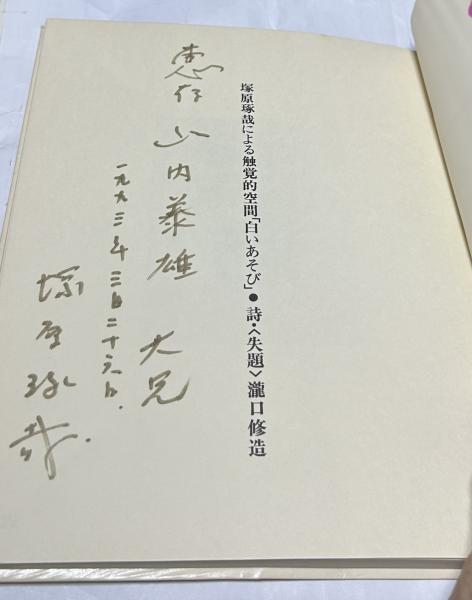 塚原琢哉による触覚的空間「白いあそび」●詩・<失題>瀧口修造
恵存 山内泰雄 大兄
一九九三年三月二十六日.
塚原琢哉.